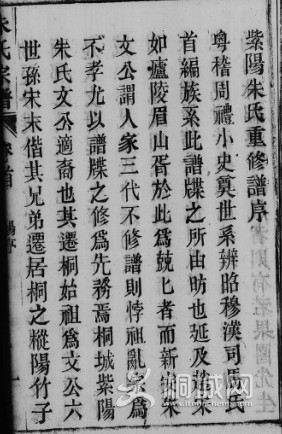 紫陽朱氏重修譜序
粵稽周禮小史奠世系辨昭穆漢司馬氏
首編族系此譜牒之所由昉也延及趙宋
如廬陵眉山胥於此為兢兢者而新安朱
文公謂人家三代不修譜則悖祖亂宗為
不孝尤以譜牒之修為先務焉桐城紫陽
朱氏文公適裔也其遷桐始祖為文公六
世孫宋末偕其兄弟遷居桐之樅陽竹子
朱氏宗譜 卷首
桐城网